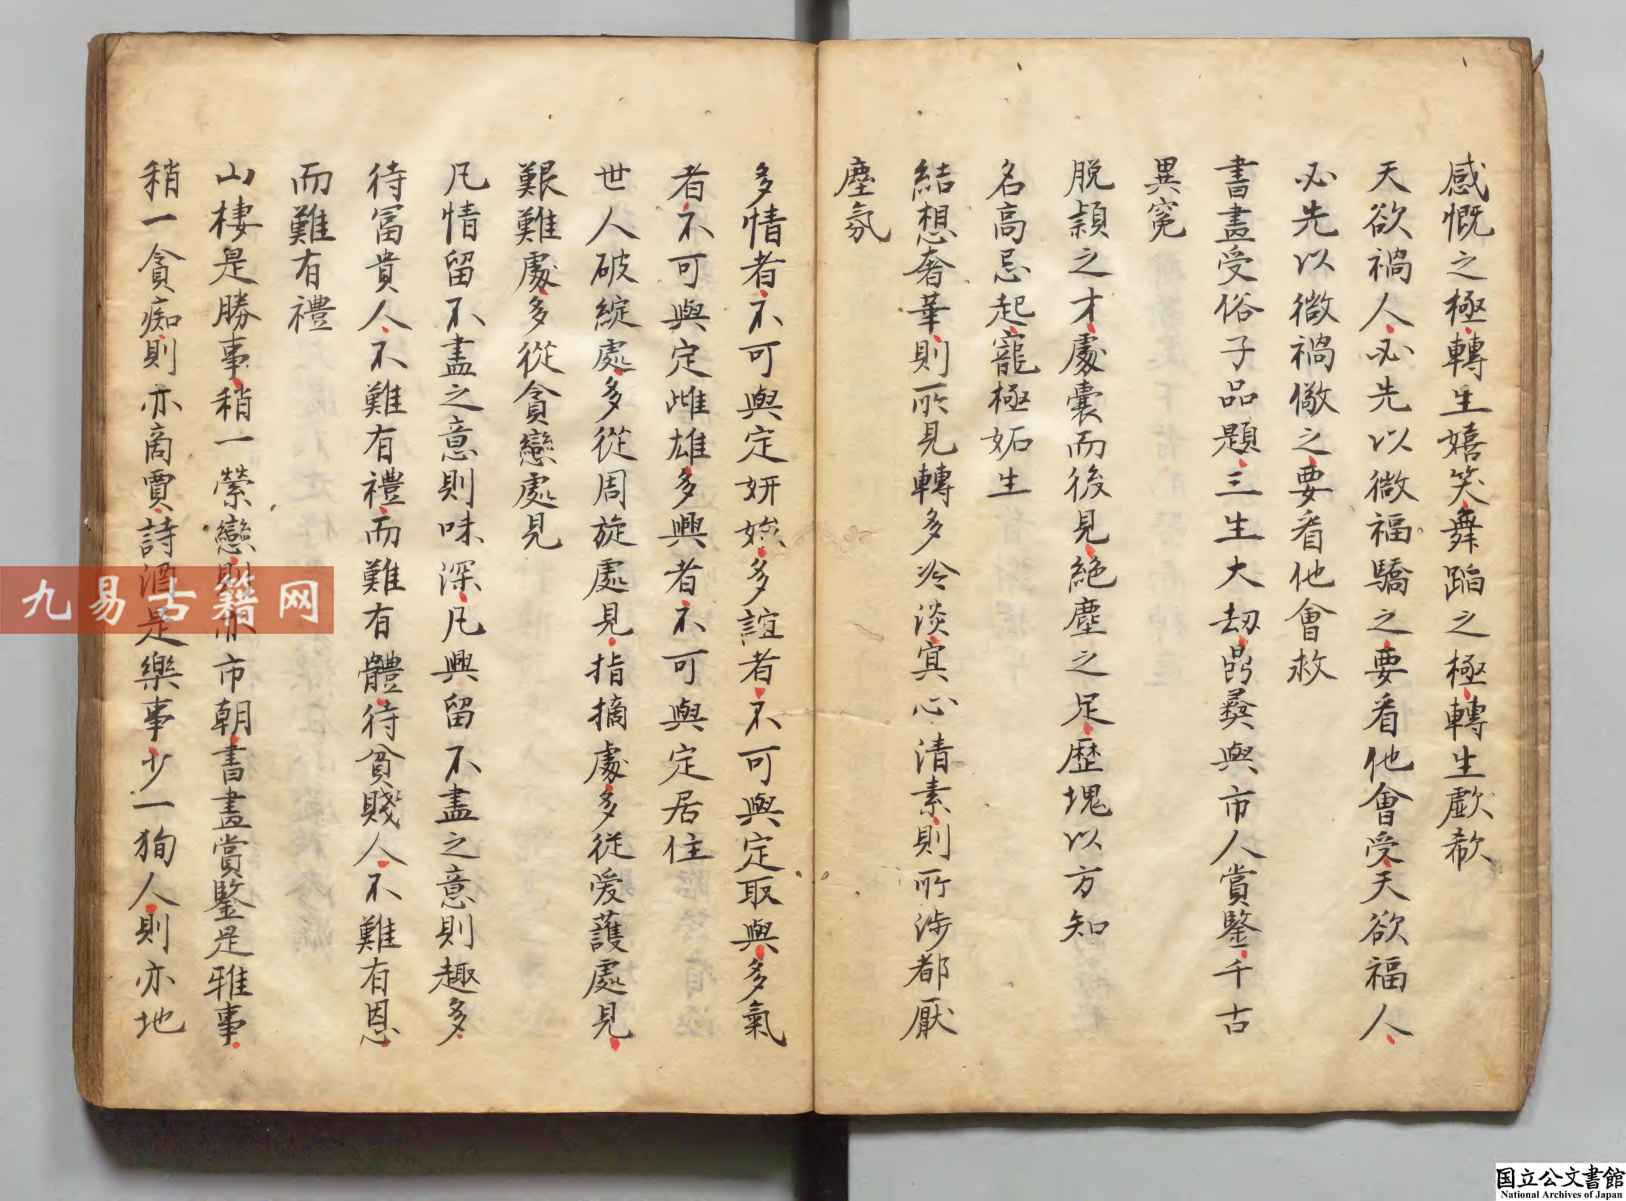 感慨之極轉生嬉笑舞蹈之極轉生歔欷
天欲禍人必先以微福驕之要看他會受天欲福人
必先以微禍儆之要看他會救
書畫受俗子品題三生大刼鼎彜與市人賞鑒千古
異寃
脫穎之才處囊而後見絶塵之足歷塊以方知
名高忌起寵極妬生
結想奢華則所見轉多冷淡寘心清素則所涉都厭
塵氛
多情者不可與定妍媸多誼者不可與定取與多氣
者不可與定雌雄多興者不可與定居住
世人破綻處多從周旋處見指摘處多從愛護處見
艱難處多從貪戀處見
凡情留不盡之意則味深凡興留不盡之意則趣多
待富貴人不難有禮而難有體待貧賤人不難有恩
而難有禮
山棲是勝事稍一縈戀則亦市朝書畫賞鑒是雅事
稍一貪痴則亦商賈詩酒是樂事少一狥人則亦地
九易古籍网
国立公文書館
National Archives of Japan